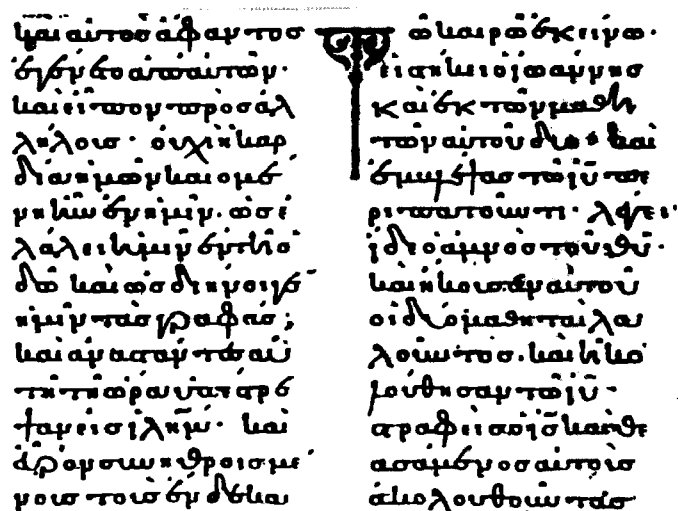 καὶ αὐτὸς ἄφαντος
ἐγένετο ἀπ' αὐτῶν·
καὶ εἶπον πρὸς ἀλ
λήλους· οὐχὶ ἡ καρ
δία ἡμῶν καιομέ
νη ἦν ἐν ἡμῖν· ὡς ἐ
λάλει ἡμῖν ἐν τῇ ὁ
δῷ καὶ ὡς διήνοιγε
ἡμῖν τὰς γραφάς;
καὶ ἀναστάντες αὐ
τῇ τῇ ὥρα ὑπέστρε
ψαν εἰς ἰλη̅μ· καὶ
εὗρον συνηθροισμέ
νους τοὺς ἕνδεκα
Τῷ καιρῷ ἐκείνω·
εἱστήκει ὁ ἰωάννης
καὶ ἐκ τῶν μαθη
τῶν αὐτοῦ δύο· καὶ
ἐμβλέψας τῷ ι̅υ̅ πε
ριπατοῦντι· λέγει·
ἴδε ὁ ἀμνὸς τοῦ θ̅υ̅·
καὶ ἤκουσαν αὐτοῦ
οἱ δύο μαθηταὶ λα
λοῦντος· καὶ ἠκο
λούθησαν τῷ ι̅υ̅·
στραφεὶς ὁ ι̅ς̅ καὶ θε
ασάμενος αὐτοὺς
ἀκολουθοῦντας